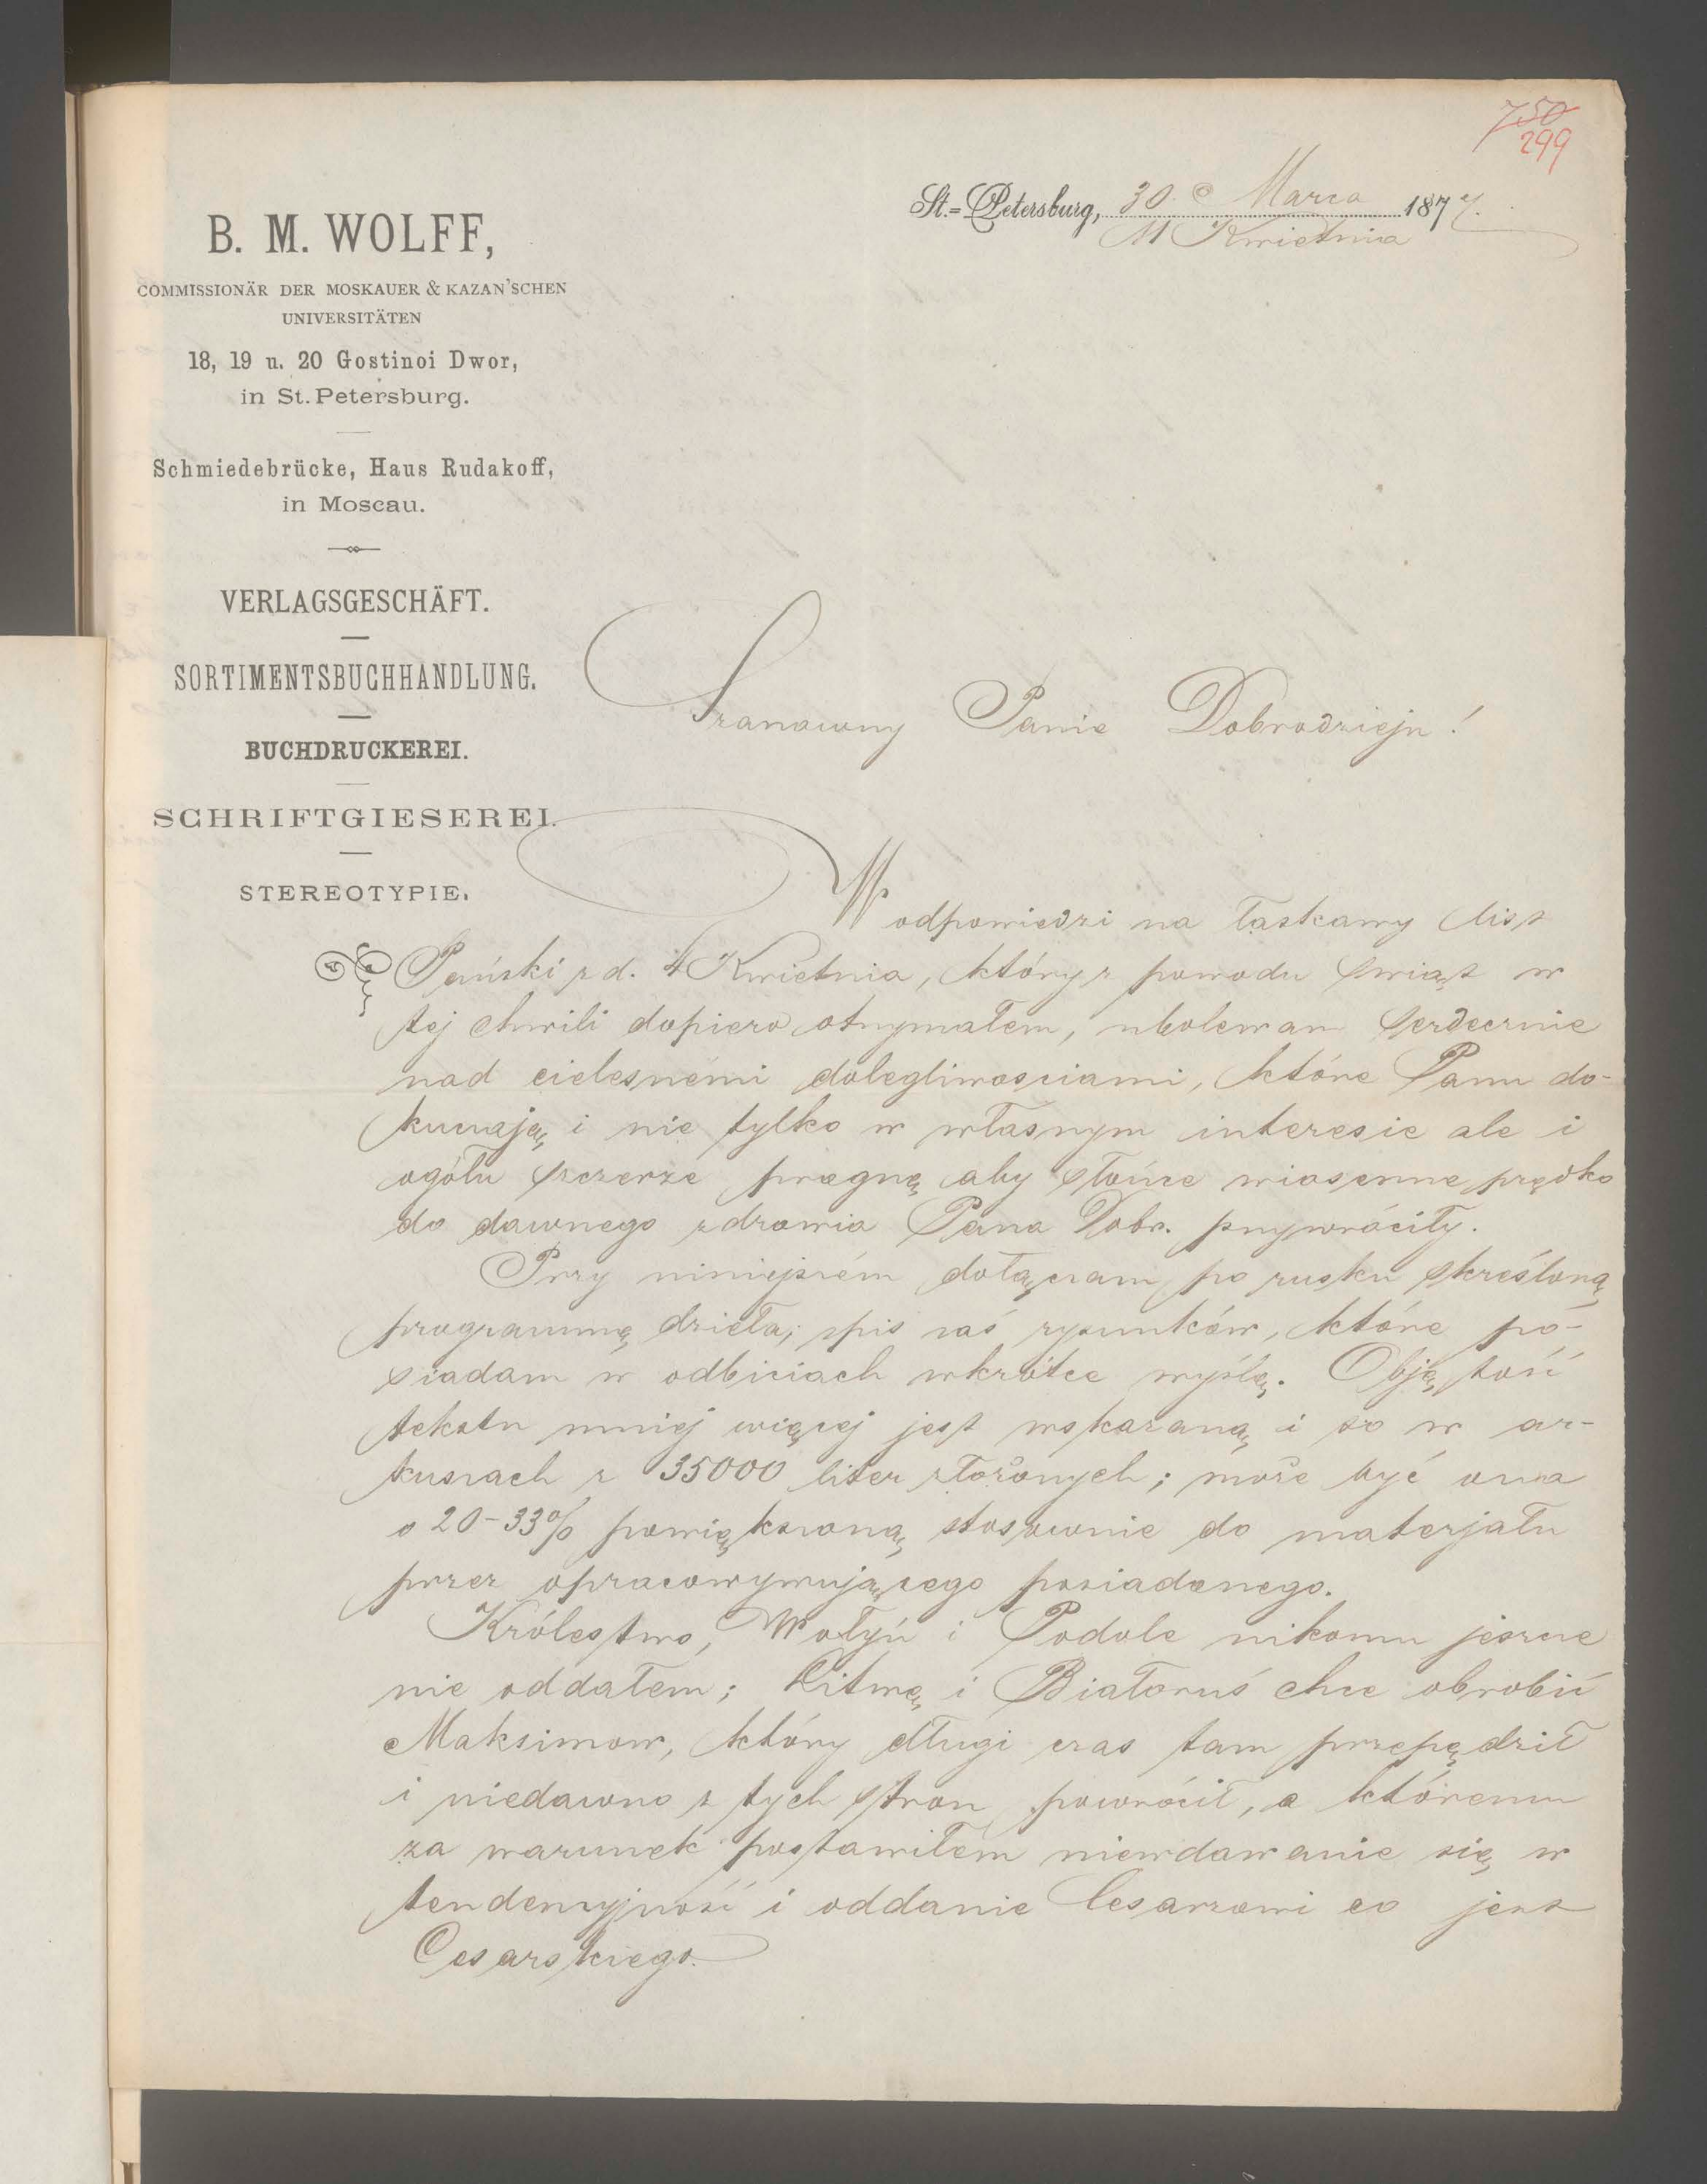 750
299
St.-Petersburg, 30 Marca 1877.
11 Kwietnia
B. M. WOLFF,
COMMISSIONÄR DER MOSKAUER & KAZAN'SCHEN
UNIVERSITÄTEN
18, 19 u. 20 Gostinoi Dwor,
in St. Petersburg.
Schmiedebrücke, Haus Rudakoff,
in Moscau.
VERLAGSGESCHÄFT.
SORTIMENTSBUCHHANDLUNG.
BUCHDRUCKEREI.
SCHRIFTGIESEREI.
STEREOTYPIE.
Szanowny Panie Dobrodzieju!
W odpowiedzi na łaskawy list
Pański z d. 4 Kwietnia, który z powodu świąt w
tej chwili dopiero otrzymałem, ubolewam serdecznie
nad cielesnémi dolegliwosciami, które Panu do-
kuczają, i nie tylko w własnym interesie ale i
ogółu szczerze pragnę aby słońce wiosenne prędko
do dawnego zdrowia Pana Dobr. przywróciły.
Przy niniejszém dołączam po rusku skreśloną
programmę dzieła; spis zaś rysunków, które po-
siadam w odbiciach wkrótce wyślę. Objętość
tekstu mniej więcej jest wskazaną i to w ar-
kuszach z 35000 liter złożonych; może być ona
o 20-33% powiększoną stosownie do materjału
przez opracowywującego posiadanego.
Królestwo, Wołyń i Podole nikomu jeszcze
nie oddałem; Litwę i Białoruś chce obrobić
Maksimow, który długi czas tam przepędził
i niedawno z tych stron powrócił, a któremu
za warunek postawiłem niewdawanie się w
tendencyjność i oddanie Cesarzowi co jest
Cesarskiego.